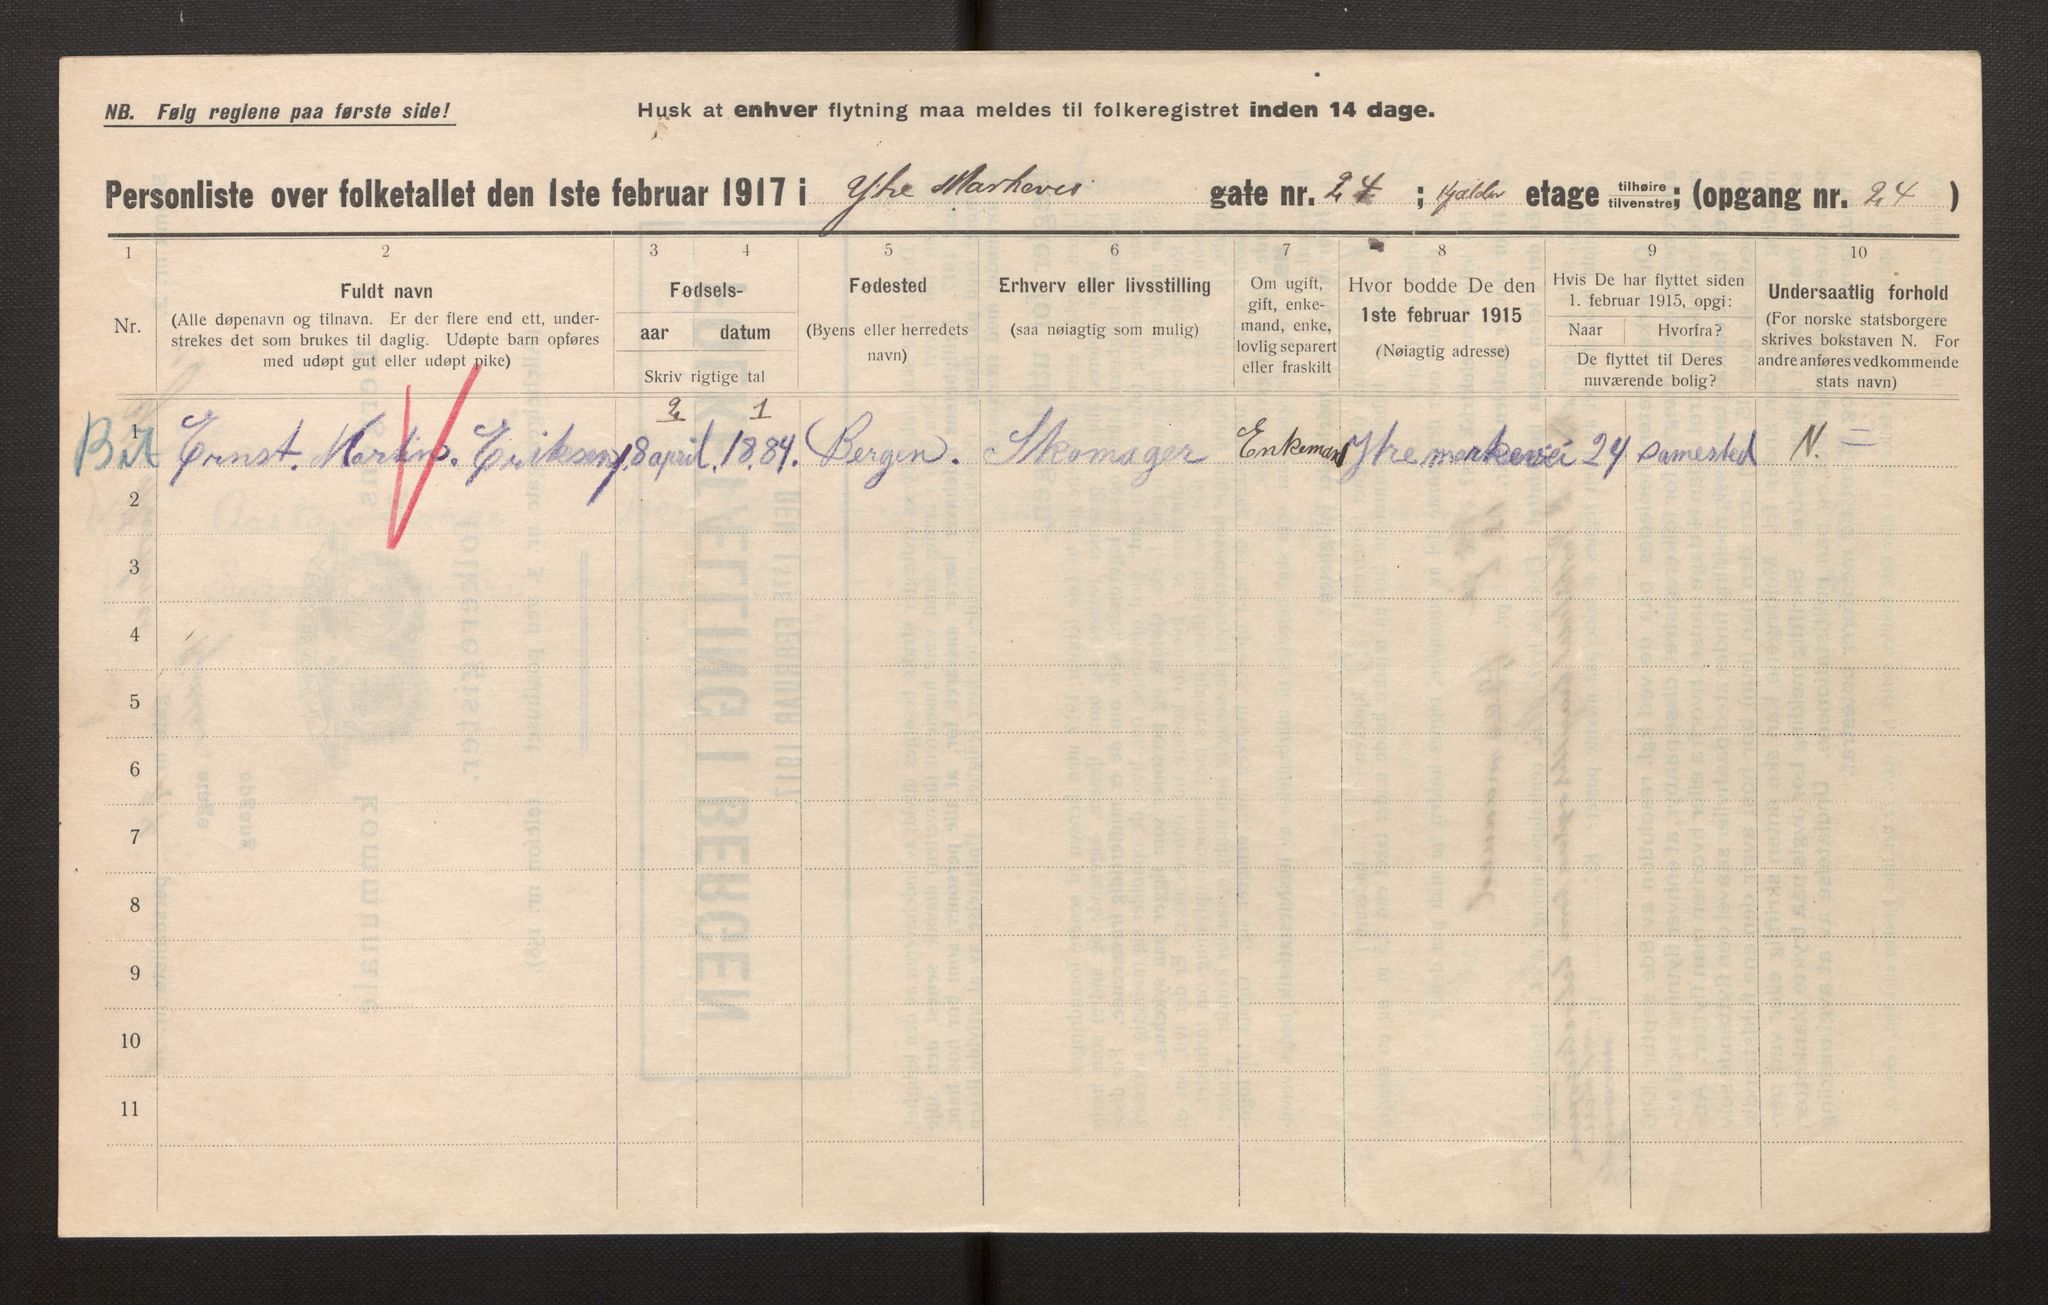 NB. Følg reglene paa første side!
Husk at enhver flytning maa meldes til folkeregistret inden 14 dage.
Personliste over folketallet den 1ste februar 1917 i Ytre Markevei gate nr. 24 ; Kjælder etage tilhøire tilvenstre ; (opgang nr. 24 )
1 2 3 4 5 6 7 8 9 10
Nr.
Fuldt navn
(Alle døpenavn og tilnavn. Er der flere end ett, under-
strekes det som brukes til daglig. Udøpte barn opføres
med udøpt gut eller udøpt pike)
Fødsels-
aar datum
Skriv rigtige tal
Fødested
(Byens eller herredets
navn)
Erhverv eller livsstilling
(saa nøiagtig som mulig)
Om ugift,
gift, enke-
mand, enke,
lovlig separert
eller fraskilt
Hvor bodde De den
1ste februar 1915
(Nøiagtig adresse)
Hvis De har flyttet siden
1. februar 1915, opgi:
Naar Hvorfra?
De flyttet til Deres
nuværende bolig?
Undersaatlig forhold
(For norske statsborgere
skrives bokstaven N. For
andre anføres vedkommende
stats navn)
2 1
1 Ernst. Martin. Eriksen 18 april. 1884. Bergen. Skomager Enkeman Ytre markevei 24 samested N. =
2
3
4
5
6
7
8
9
10
11